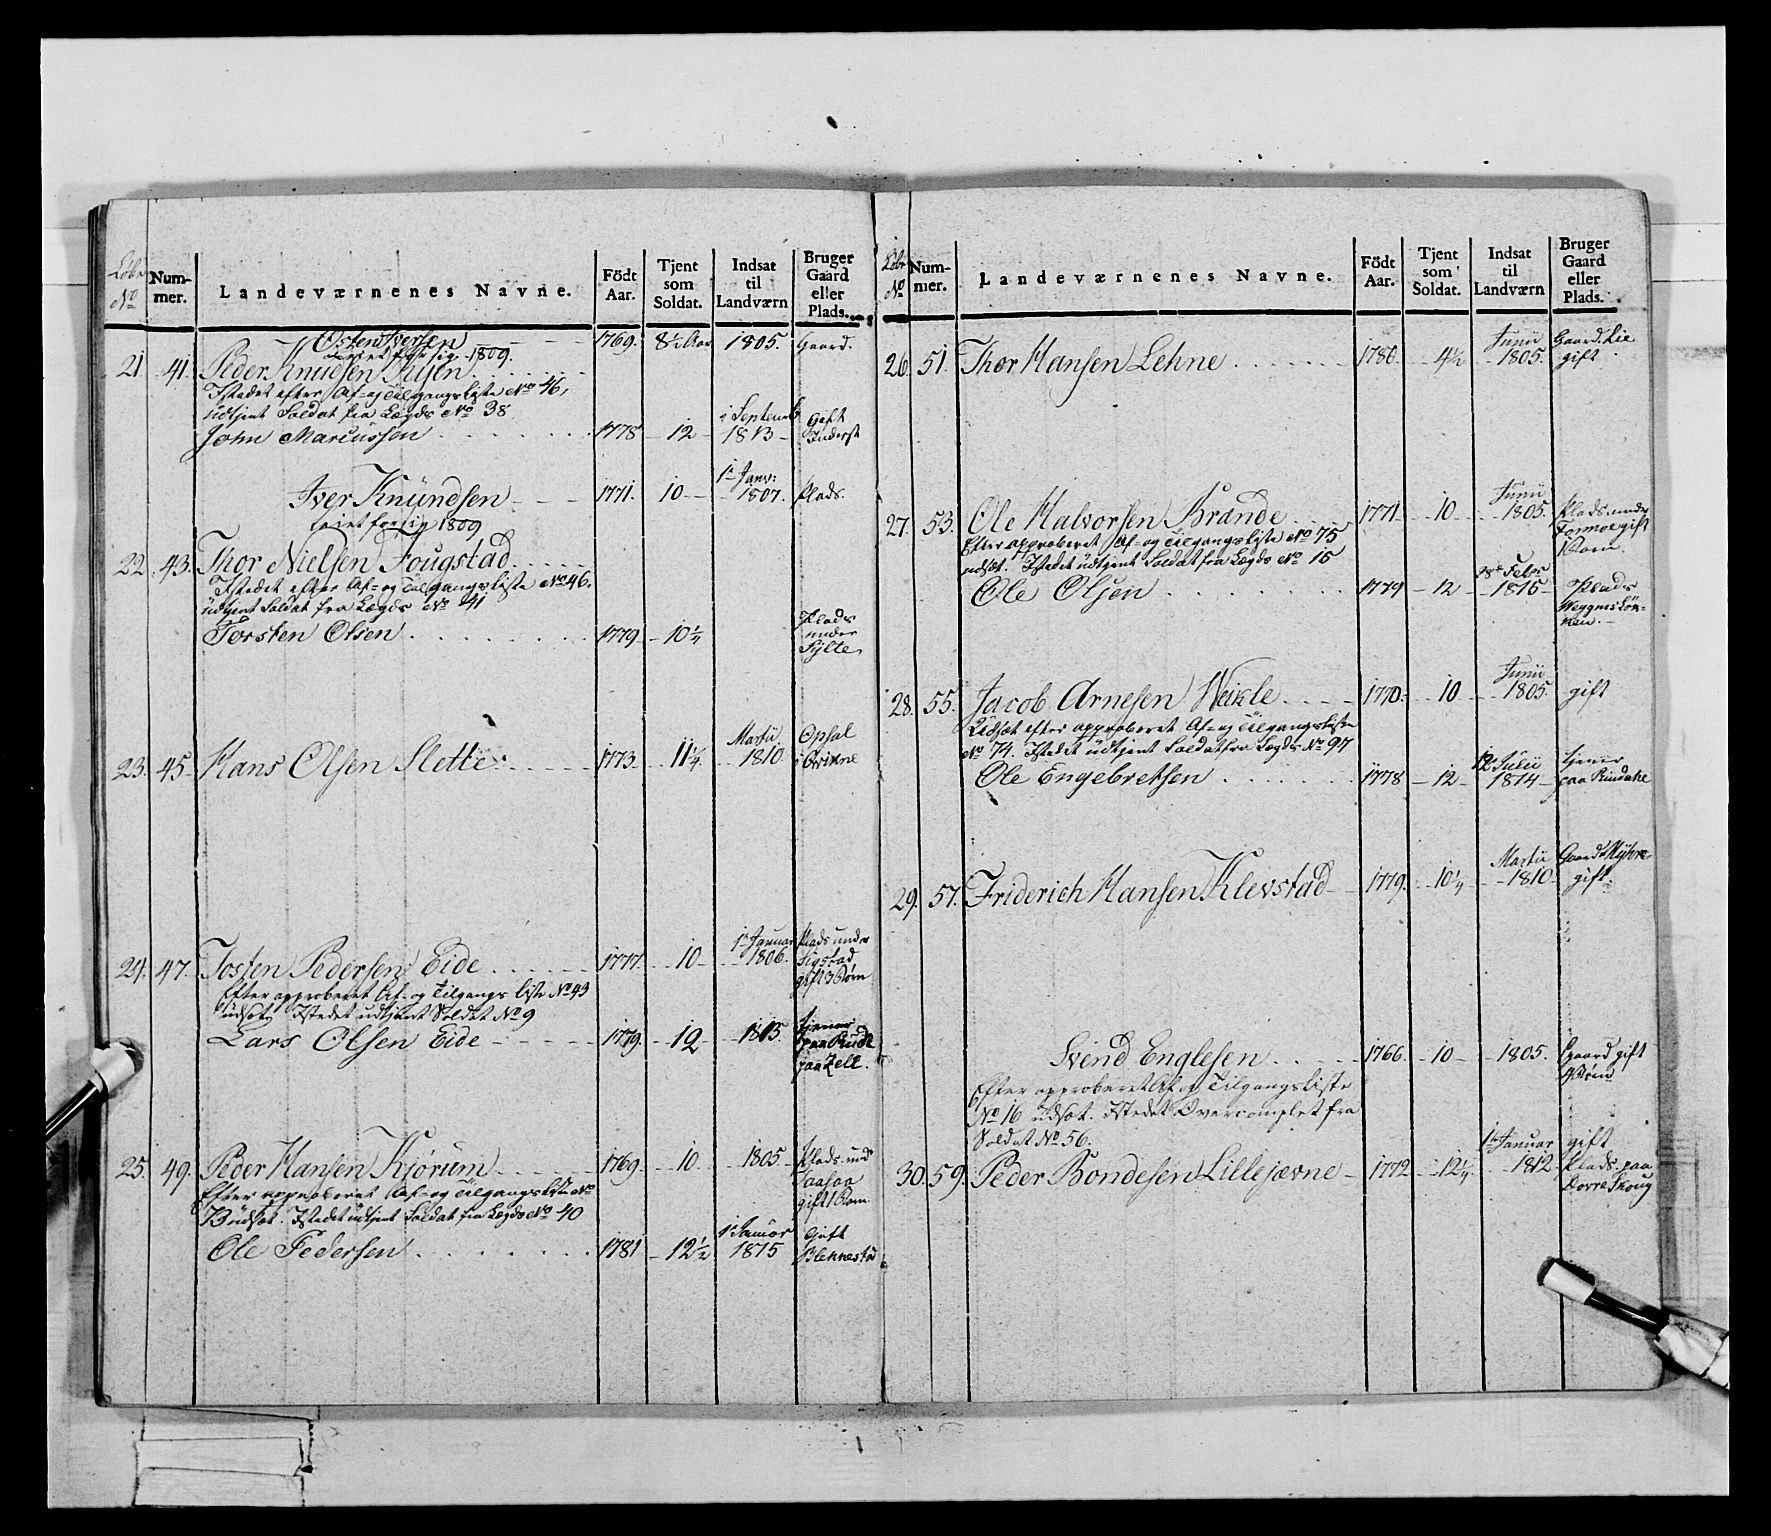 Löbe No
Num-
mer.
Landeværnenes Navne.
Födt
Aar.
Tjent
som
Soldat.
Indsat
til
Landværn
Bruger
Gaard
eller
Plads.
Osten Iversen 1769. 8½ Aar 1805. Gaard.
leiet for sig 1809.
21. 41. Peder Knudsen
Istedet efter Af- og Tilgangsliste No 46,
udtjent Soldat fra Lægds No 38
John Marcussen 1778 - 12 - i Septembr 1813 - Gift Inderst
Iver Knudsen 1771. 10 - 1te Janv: 1807. Plads.
leiet for sig 1809
22. 43. Thor Nielsen Fougstad
Istedet efter Af- og Tilgangsliste No 46.
udtjent Soldat fra Lægds No 41
Torsten Olsen 1779 - 10¼ Plads under Sylte.
23. 45. Hans Olsen Slette 1773 - 11¼ Martii 1810 Opsal i Qvikne
24. 47. Tosten Pedersen Eide 1777. 10 - 1te Januar 1806. Plads under Sigstad gift 3 Börn
Efter approberet Af- og Tilgangs liste No 43
udsat. Istedet udtjent Soldat No 9
Lars Olsen Eide 1779. - 12 - 1813. tjener paa
25. 49. Peder Hansen Kjörum 1769 - 10 - 1805. Plads und gift 1 Barn
Efter approberet Af- og Tilgangsliste No
13 udsat. Istedet udtjent Soldat fra Lægds No 40
Ole Pedersen 1781 - 12½ 1te Januar 1815 Gift
Löbe No
Num-
mer.
Landeværnenes Navne.
Födt
Aar.
Tjent
som
Soldat.
Indsat
til
Landværn
Bruger
Gaard
eller
Plads.
26. 51. Thor Hansen Lehne 1780. - 4½ - Junii 1805. Gaard. Lie gift
27. 53. Ole Halvorsen Brande 1771 - 10 - Junii 1805. Plads under Formoe gift 1 Barn.
Efter approberet Af- og Tilgangsliste No 75
udsat. Istedet udtjent Soldat fra Lægds No 15
Ole Olsen 1779 - 12 - 28de Febr 1815 - Plads
28. 55. Jacob Arnesen Weikle 1770 - 10 - Junii 1805. gift
Udsat efter approberet Af- og Tilgangsliste
No 74. Istedet udtjent Soldat fra Lægds No 97
Ole Engebretsen 1778 - 12 - 12 Julii 1814 - tjener paa Rindahl
29. 57. Friderich Hansen Klevstad 1779. - 10¼ - Martii 1810 Gaard Myhre gift.
Svend Englesen 1766. - 10 - 1805. Gaard gift 4 Börn
Efter approberet Af og Tilgangsliste
No 16 udsat. Istedet Overcomplet fra
Soldat No 56.
30. 59. Peder Bondesen Lillejævne - 1772 - 12¼ - 1te Januar 1812 gift Plads. paa Dovre Skoug